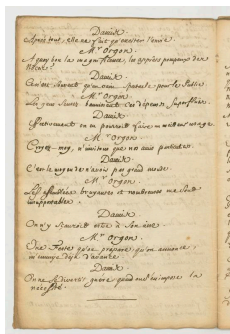 Damis
Après tout, elle ne fait qu'exciter l'envie
Mr Orgon.
A quoy bon la magnificence, les apprets pompeux des
Noces?
Damis
Ce n'est souvent qu'un vain spectacle pour le Public
Mr Orgon.
Les gens sensés bannissent ces depenses superflues.
Damis
Effectivement on en pourroit faire un meilleur usage
Mr Orgon.
Croyez-moy, n'invitons que nos amis particuliers.
Damis
C'est le moyen de n'avoir pas grand monde
Mr Orgon.
Les assemblées bruyantes et nombreuses me sont
insupportables.
Damis
On n'y sçauroit être à son aise
Mr Orgon.
Une Feste qu'on prepare, qu'on annonce,
m'ennuye déja d'avance
Damis
On ne se divertit guere quand on s'en impose la
necessité.